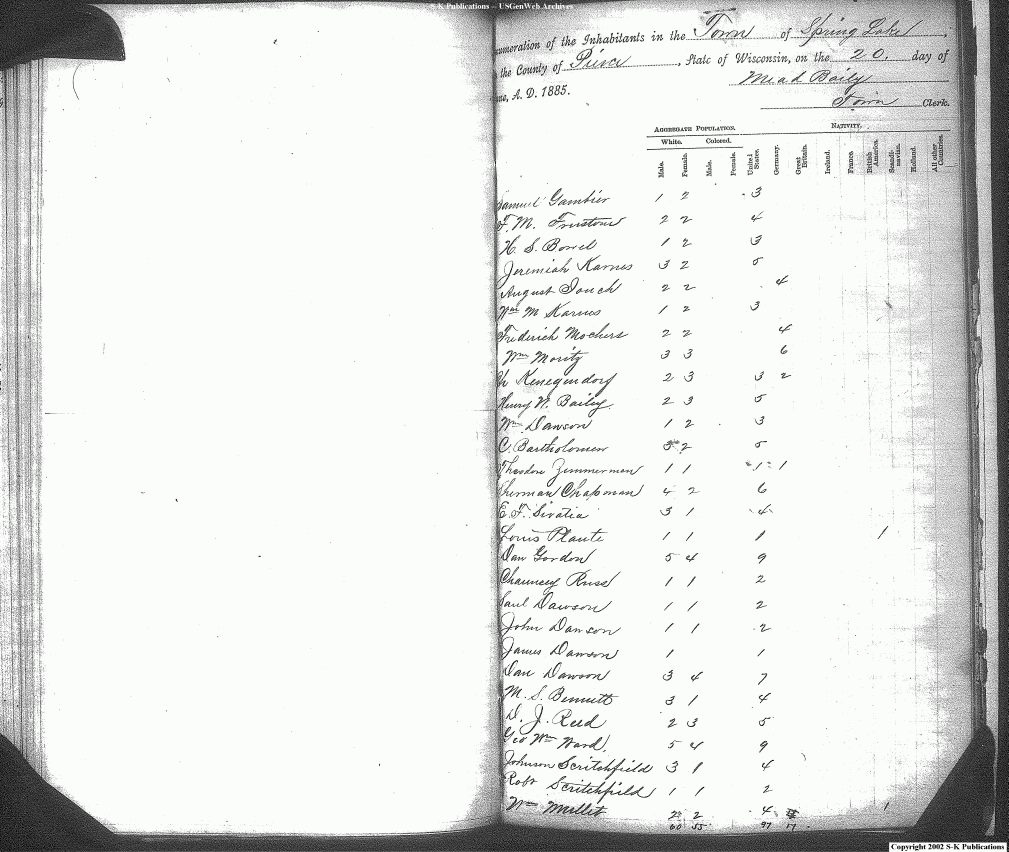 S-K Publications -- USGenWeb Archives
numeration of the Inhabitants in the Town of Spring Lake,
the County of Pierce, State of Wisconsin, on the 20. day of
ne, A. D. 1885. Mead Baily
Town Clerk.
AGGREGATE POPULATION. NATIVITY.
White. Colored.
Male. Female. Male. Female. United States. Germany. Great Britain. Ireland. France. British America. Scandinavian. Holland. All other Countries.
Samuel Gambier 1 2 3
F. M. 2 2 4
H. S. Bowel 1 2 3
Jeremiah Karnes 3 2 5
August Jouch 2 2 4
Wm M Karnes 1 2 3
Frederich Mochers 2 2 4
Wm Moritz 3 3 6
Kenegendorf 2 3 3 2
Henry W. Baily 2 3 5
Wm Dawson 1 2 3
C. Bartholomew 3 2 5
Theodore Zimmerman 1 1 1 1
Sherman Chapman 4 2 6
E. F. Siratia 3 1 4
Louis Plante 1 1 1 1
Dan Gordon 5 4 9
Chauncey Russ 1 1 2
Saul Dawson 1 1 2
John Dawson 1 1 2
James Dawson 1 1
Dan Dawson 3 4 7
M. S. Bennett 3 1 4
D. J. Reed 2 3 5
Geo Wm Ward. 5 4 9
Johnson Scritchfield 3 1 4
Robt Scritchfield 1 1 2
Wm Millet 2 4 1
60 55 97 17
Copyright 2002 S-K Publications